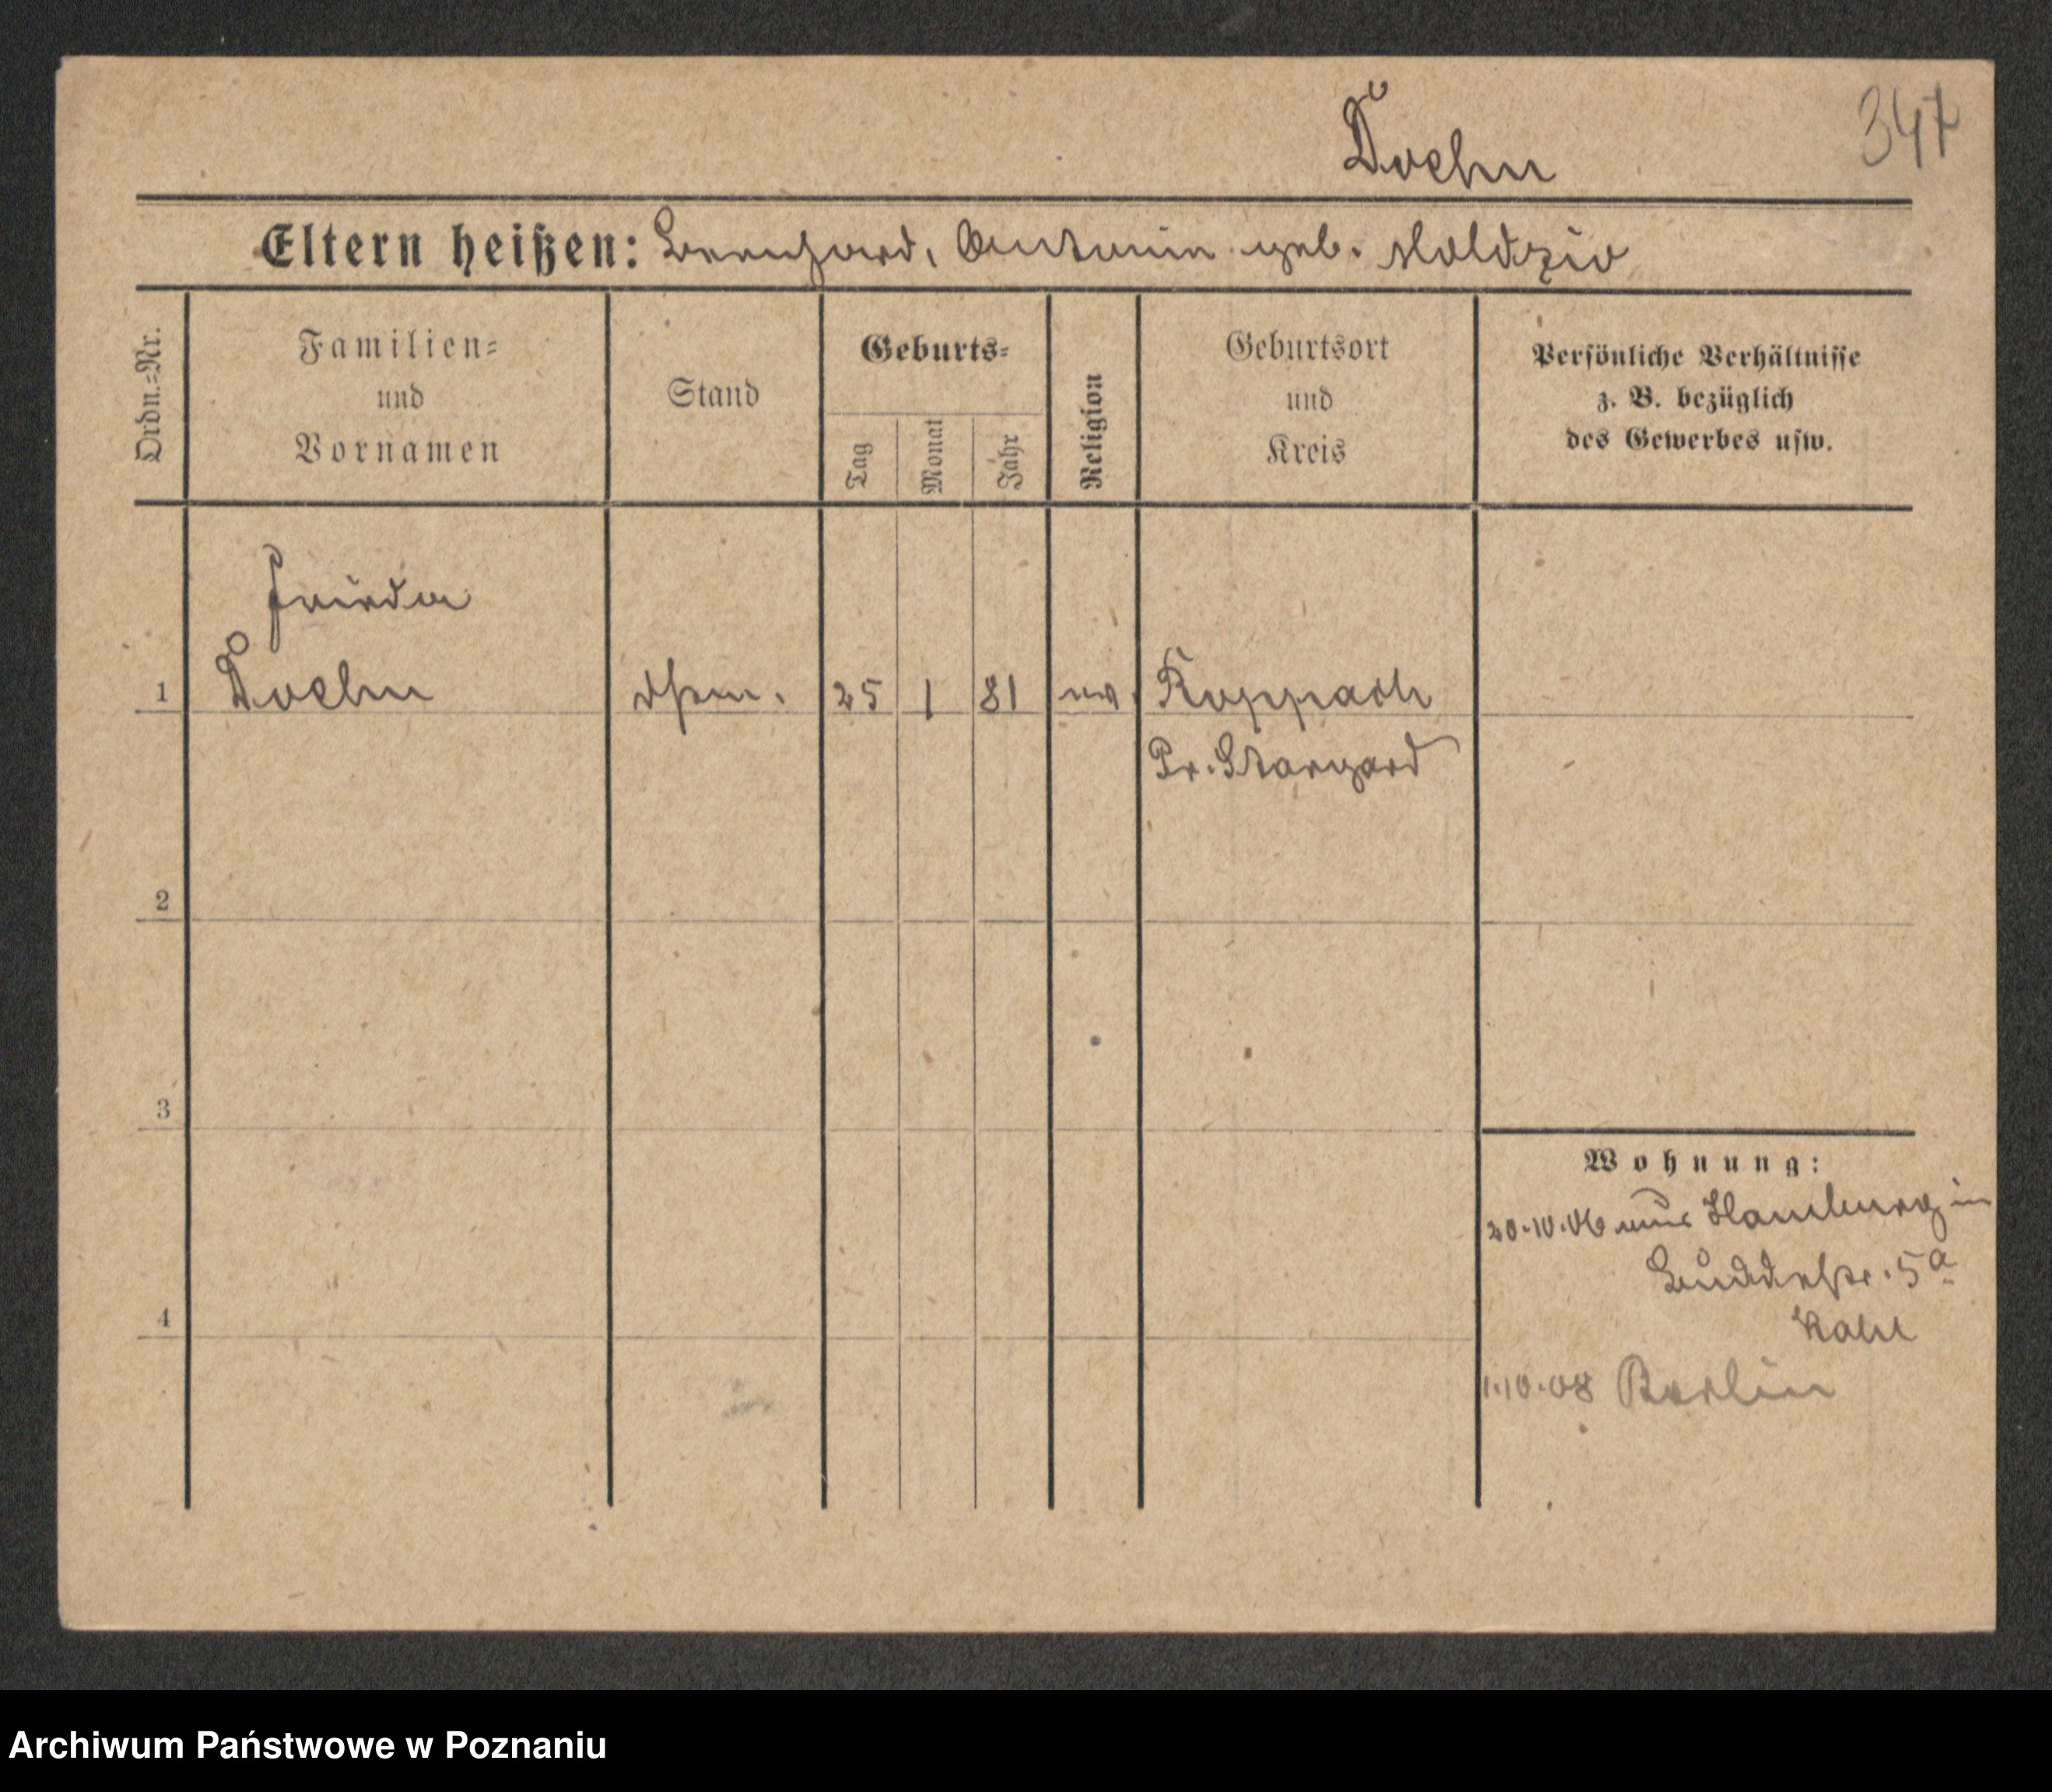 Doehn
347
Eltern heißen: Bernhard, Antonie geb. Moldzio
Ordn.-Nr.
Familien-
und
Vornamen
Stand
Geburts-
Tag
Monat
Jahr
Religion
Geburtsort
und
Kreis
Persönliche Verhältnisse
z. B. bezüglich
des Gewerbes usw.
Frieda
1 Doehn 25 1 81 ev. Koppach
Pr. Stargard
2
3
4
Wohnung:
20.10.06 aus Hamburg in
Buddestr. 5a
1.10.08 Berlin
Archiwum Państwowe w Poznaniu